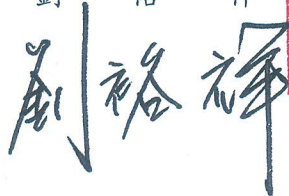 劉裕祥